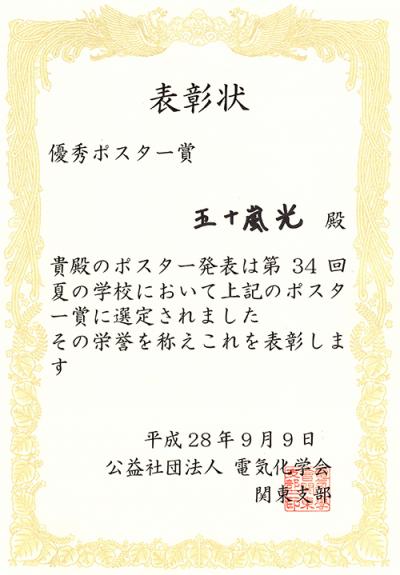 表彰状
優秀ポスター賞
五十嵐光 殿
貴殿のポスター発表は第 34 回
夏の学校において上記のポスタ
ー賞に選定されました
その栄誉を称えこれを表彰しま
す
平成 28 年 9 月 9 日
公益社団法人 電気化学会
関東支部